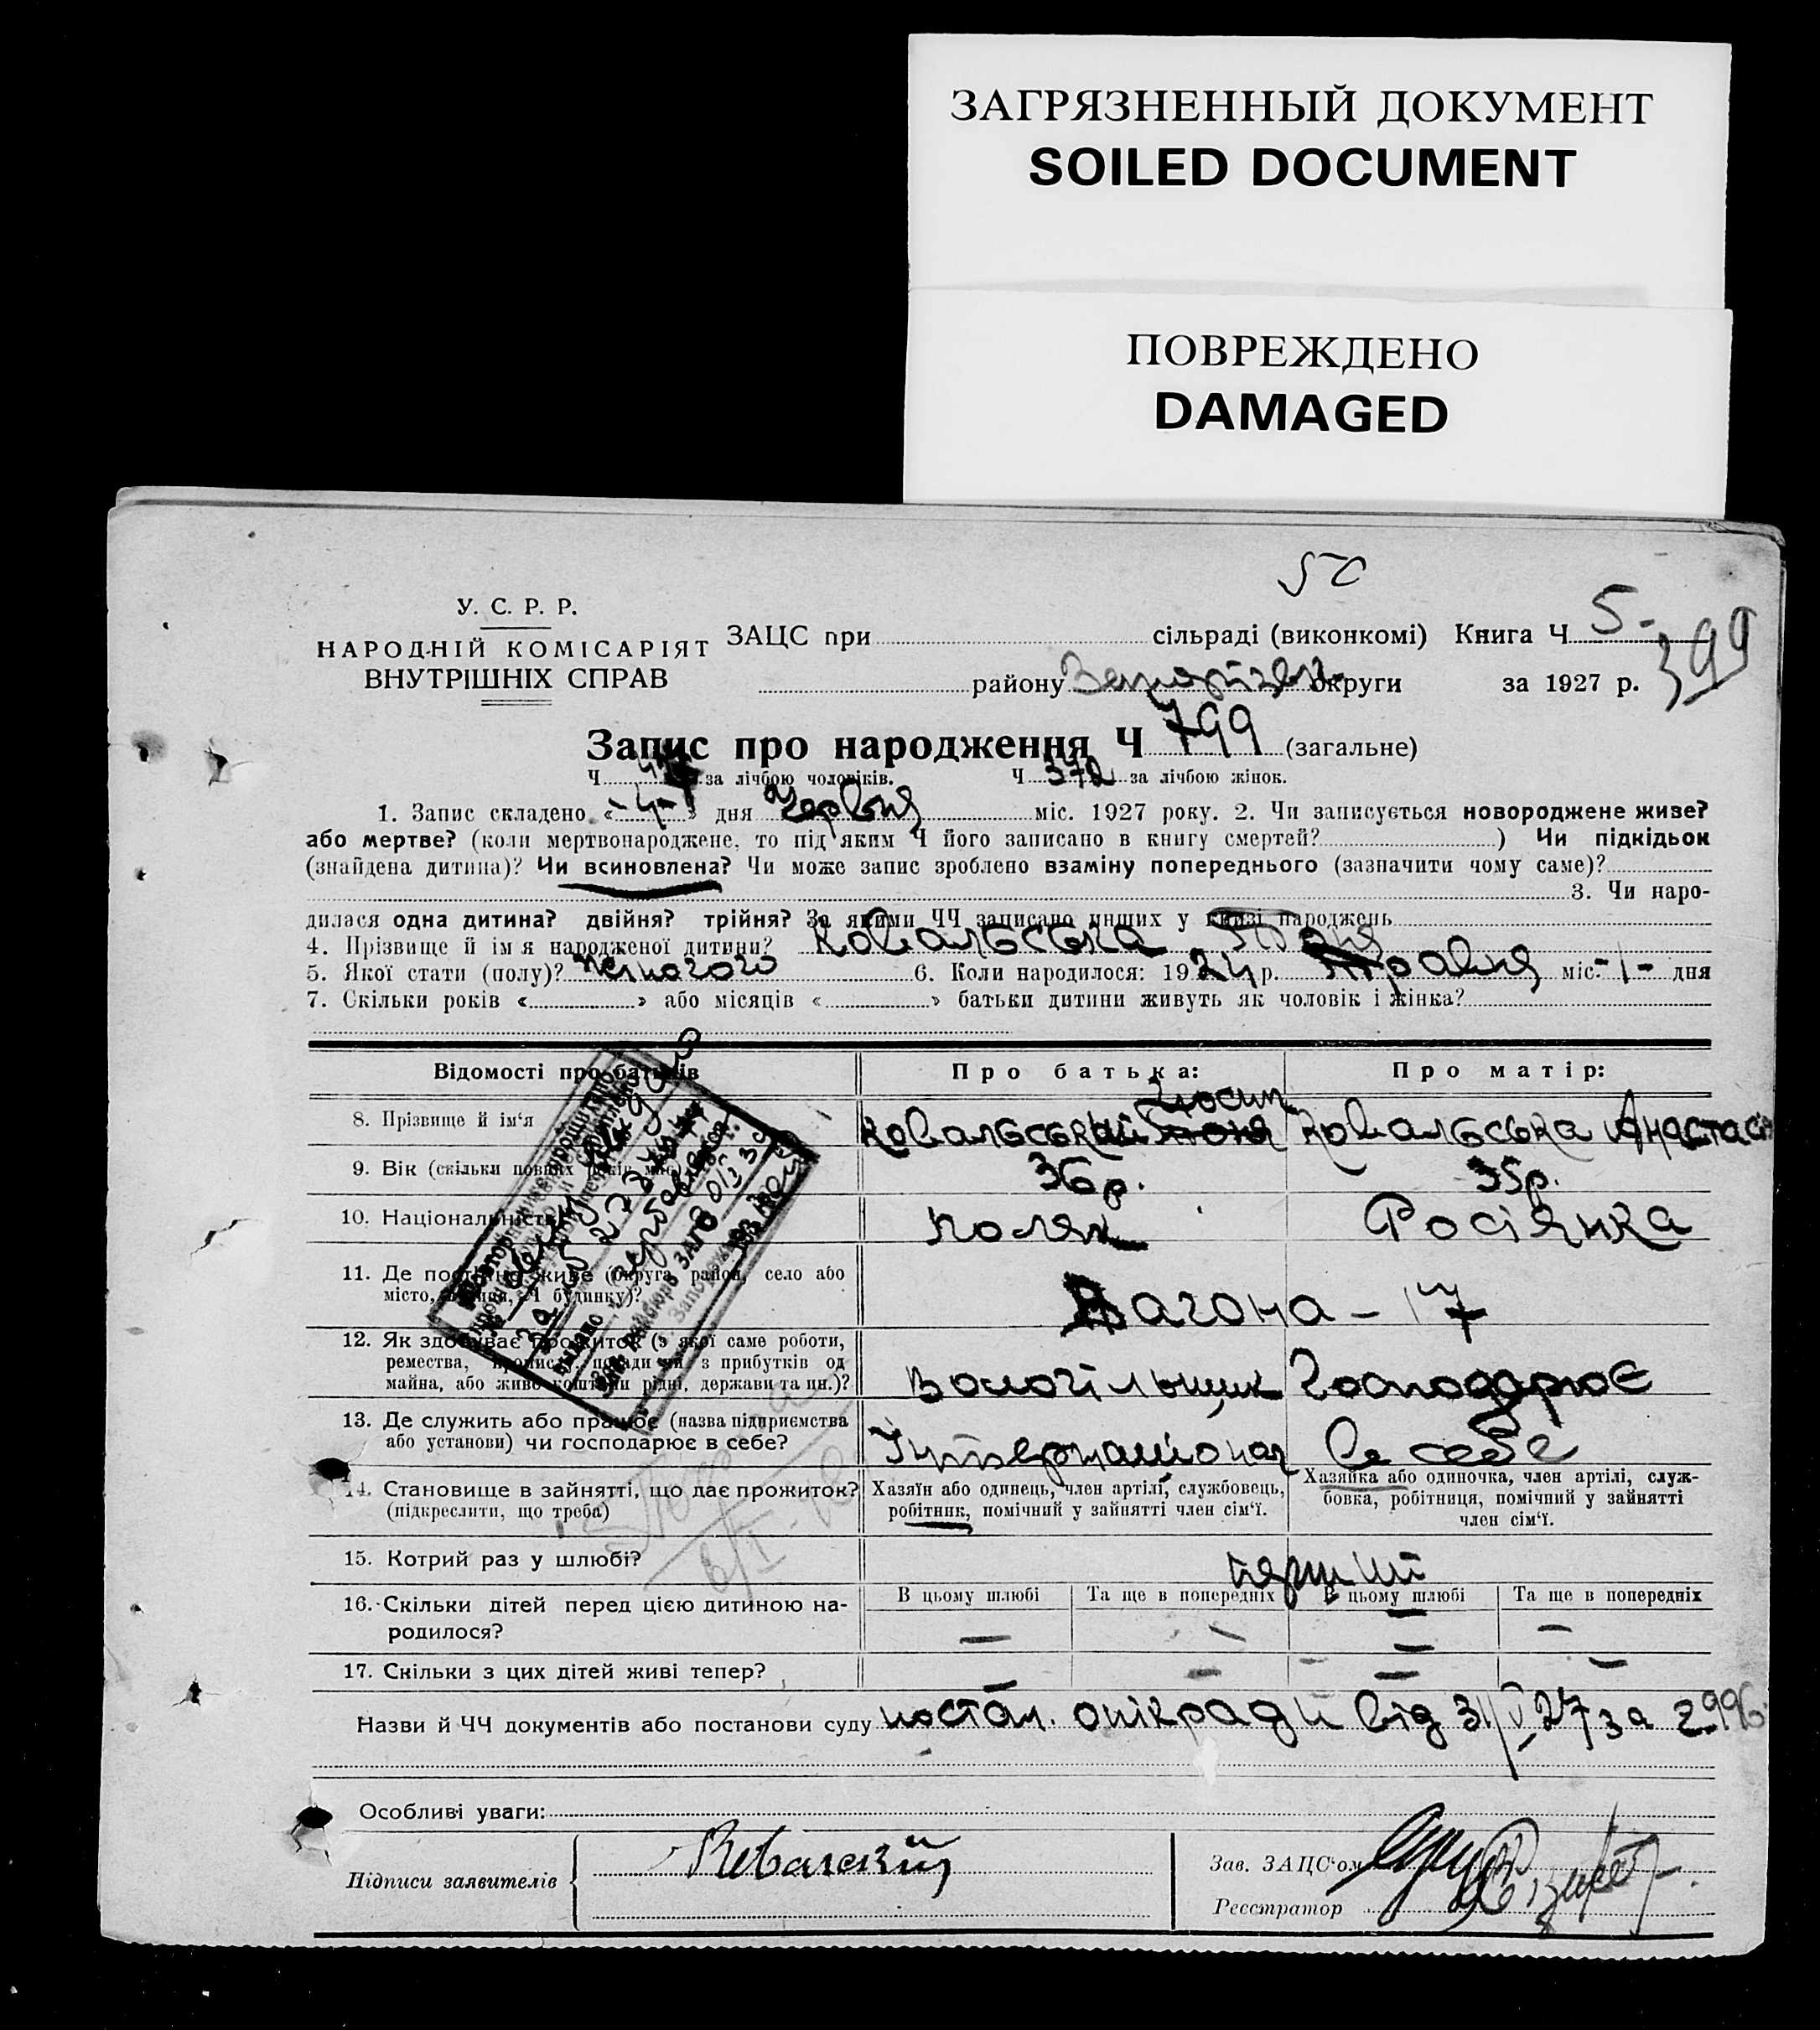 ЗАГРЯЗНЕННЫЙ ДОКУМЕНТ
SOILED DOCUMENT
ПОВРЕЖДЕНО
DAMAGED
У. С. Р. Р.
НАРОДНІЙ КОМІСАРІЯТ
ВНУТРІШНІХ СПРАВ
ЗАЦС при сільраді (виконкомі) Книга Ч 5-
399
району округи за 1927 р.
Запис про народження Ч 799 (загальне)
Ч за лічбою чоловіків. Ч 372 за лічбою жінок.
1. Запис складено «-4-» дня Червня міс. 1927 року. 2. Чи записується новороджене живе?
або мертве? (коли мертвонароджене, то під яким Ч його записано в книгу смертей? ) Чи підкідьок
(знайдена дитина)? Чи всиновлена? Чи може запис зроблено взаміну попереднього (зазначити чому саме)?
3. Чи наро-
дилася одна дитина? двійня? трійня? За якими ЧЧ записано инших у книзі народжень
4. Прізвище й ім я народженої дитини? Ковальська
5. Якої стати (полу)? жіночого 6. Коли народилося: 1924 р. Травня міс. -1- дня
7. Скільки років « » або місяців « » батьки дитини живуть як чоловік і жінка?
Відомості про батьків Про батька: Про матір:
8. Прізвище й ім'я Ковальський Йосип Ковальська Анастасія
9. Вік (скільки повних років має) 36 р. 35 р.
10. Національність Поляк Росіянка
11. Де постійно живе (округа, район, село або
місто, вулиця, Ч будинку)? Вагона - 17
12. Як здобуває прожиток (з якої саме роботи,
ремества, промислу, посади чи з прибутків од
майна, або живе коштами рідні, держави та ин.)? Господарює
13. Де служить або працює (назва підприємства
або установи) чи господарює в себе? Інтернаціонал В себе
14. Становище в зайнятті, що дає прожиток?
(підкреслити, що треба)
Хазяїн або одинець, член артілі, службовець,
робітник, помічний у зайнятті член сім'ї.
Хазяйка або одиночка, член артілі, служ-
бовка, робітниця, помічний у зайнятті
член сім'ї.
15. Котрий раз у шлюбі? перший
16. Скільки дітей перед цією дитиною на-
родилося?
В цьому шлюбі Та ще в попередніх В цьому шлюбі Та ще в попередніх
— — — —
17. Скільки з цих дітей живі тепер? — — — —
Назви й ЧЧ документів або постанови суду постан. опікради від 31/V 27 за 2996
Особливі уваги:
Підписи заявителів
Зав. ЗАЦС'ом
Реєстратор